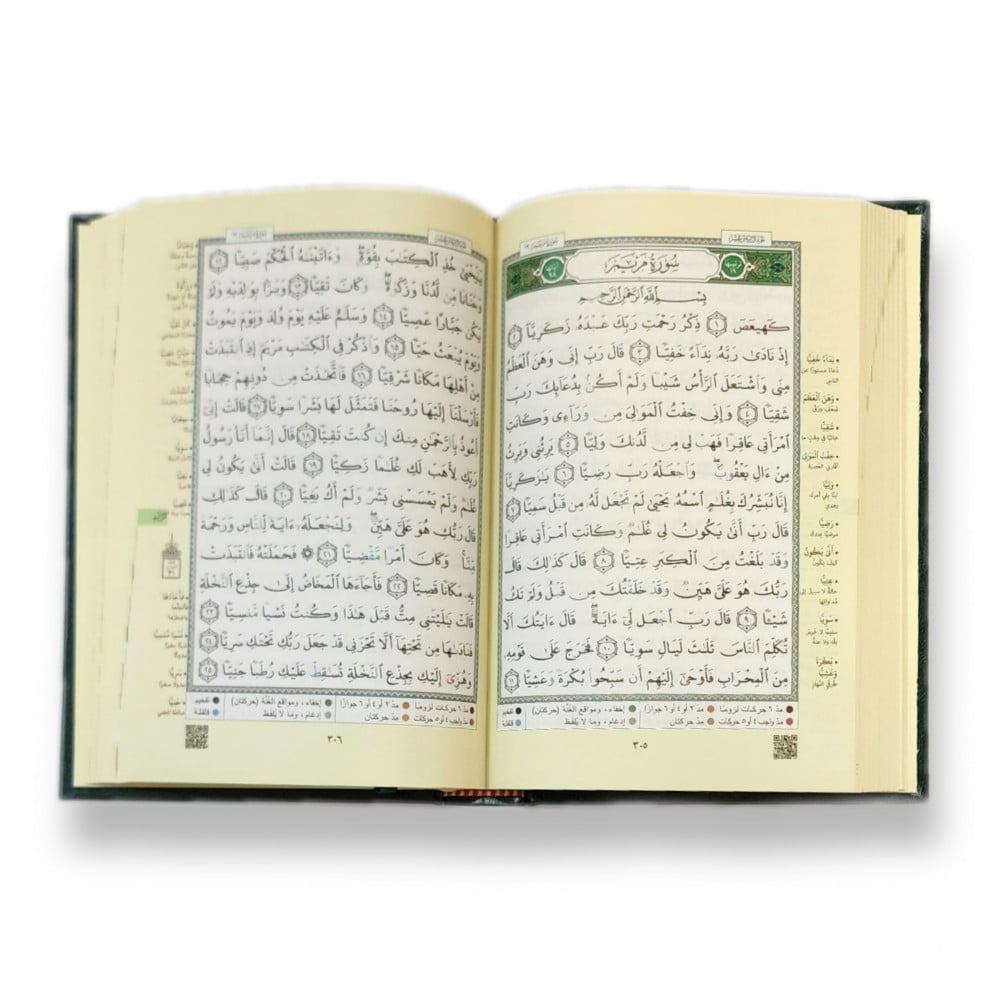 سُورَةُ مَرْيَمَ
بِسْمِ اللَّهِ الرَّحْمَٰنِ الرَّحِيمِ
كٓهيعٓصٓ ١ ذِكْرُ رَحْمَتِ رَبِّكَ عَبْدَهُۥ زَكَرِيَّآ ٢
إِذْ نَادَىٰ رَبَّهُۥ نِدَآءً خَفِيًّا ٣ قَالَ رَبِّ إِنِّى وَهَنَ ٱلْعَظْمُ
مِنِّى وَٱشْتَعَلَ ٱلرَّأْسُ شَيْبًا وَلَمْ أَكُنۢ بِدُعَآئِكَ رَبِّ
شَقِيًّا ٤ وَإِنِّى خِفْتُ ٱلْمَوَٰلِىَ مِن وَرَآءِى وَكَانَتِ
ٱمْرَأَتِى عَاقِرًا فَهَبْ لِى مِن لَّدُنكَ وَلِيًّا ٥ يَرِثُنِى وَيَرِثُ
مِنْ ءَالِ يَعْقُوبَ ۖ وَٱجْعَلْهُ رَبِّ رَضِيًّا ٦ يَٰزَكَرِيَّآ
إِنَّا نُبَشِّرُكَ بِغُلَٰمٍ ٱسْمُهُۥ يَحْيَىٰ لَمْ نَجْعَل لَّهُۥ مِن قَبْلُ سَمِيًّا ٧
قَالَ رَبِّ أَنَّىٰ يَكُونُ لِى غُلَٰمٌ وَكَانَتِ ٱمْرَأَتِى عَاقِرًا
وَقَدْ بَلَغْتُ مِنَ ٱلْكِبَرِ عِتِيًّا ٨ قَالَ كَذَٰلِكَ قَالَ
رَبُّكَ هُوَ عَلَىَّ هَيِّنٌ وَقَدْ خَلَقْتُكَ مِن قَبْلُ وَلَمْ تَكُ
شَيْـًٔا ٩ قَالَ رَبِّ ٱجْعَل لِّىٓ ءَايَةً ۚ قَالَ ءَايَتُكَ أَلَّا
تُكَلِّمَ ٱلنَّاسَ ثَلَٰثَ لَيَالٍ سَوِيًّا ١٠ فَخَرَجَ عَلَىٰ قَوْمِهِۦ
مِنَ ٱلْمِحْرَابِ فَأَوْحَىٰٓ إِلَيْهِمْ أَن سَبِّحُوا۟ بُكْرَةً وَعَشِيًّا ١١
• نِدَاءً خَفِيًّا
دعاءً مستوراً عن
الناس
• وَهَنَ الْعَظْمُ
ضعف ورقّ
• شَقِيًّا
خائباً في وقتٍ ما
• خِفْتُ الْمَوَالِيَ
أقاربي العصبة
• وَلِيًّا
ابناً يلي أمرك
بعدي
• رَضِيًّا
مرضيّاً عندك
• أَنَّى يَكُونُ
كيف يكون
• عِتِيًّا
حالةً لا سبيل إلى
مداواتها
• سَوِيًّا
سليماً لا خرس
بك ولا علّة
• بُكْرَةً
وَعَشِيًّا
طرفي النهار
مدّ ٦ حركات لزوماً مدّ ٢ أو ٤ أو ٦ جوازاً إخفاء، ومواقع الغُنَّة (حركتان) تفخيم
مدّ واجب ٤ أو ٥ حركات مدّ حركتان إدغام، وما لا يُلفَظ قلقلة
٣٠٥
يَٰيَحْيَىٰ خُذِ ٱلْكِتَٰبَ بِقُوَّةٍ ۖ وَءَاتَيْنَٰهُ ٱلْحُكْمَ صَبِيًّا ١٢
وَحَنَانًا مِّن لَّدُنَّا وَزَكَوٰةً ۖ وَكَانَ تَقِيًّا ١٣ وَبَرًّۢا بِوَٰلِدَيْهِ وَلَمْ
يَكُن جَبَّارًا عَصِيًّا ١٤ وَسَلَٰمٌ عَلَيْهِ يَوْمَ وُلِدَ وَيَوْمَ يَمُوتُ
وَيَوْمَ يُبْعَثُ حَيًّا ١٥ وَٱذْكُرْ فِى ٱلْكِتَٰبِ مَرْيَمَ إِذِ ٱنتَبَذَتْ
مِنْ أَهْلِهَا مَكَانًا شَرْقِيًّا ١٦ فَٱتَّخَذَتْ مِن دُونِهِمْ حِجَابًا
فَأَرْسَلْنَآ إِلَيْهَا رُوحَنَا فَتَمَثَّلَ لَهَا بَشَرًا سَوِيًّا ١٧ قَالَتْ إِنِّىٓ
أَعُوذُ بِٱلرَّحْمَٰنِ مِنكَ إِن كُنتَ تَقِيًّا ١٨ قَالَ إِنَّمَآ أَنَا۠ رَسُولُ
رَبِّكِ لِأَهَبَ لَكِ غُلَٰمًا زَكِيًّا ١٩ قَالَتْ أَنَّىٰ يَكُونُ لِى
غُلَٰمٌ وَلَمْ يَمْسَسْنِى بَشَرٌ وَلَمْ أَكُ بَغِيًّا ٢٠ قَالَ كَذَٰلِكِ
قَالَ رَبُّكِ هُوَ عَلَىَّ هَيِّنٌ ۖ وَلِنَجْعَلَهُۥٓ ءَايَةً لِّلنَّاسِ وَرَحْمَةً
مِّنَّا ۚ وَكَانَ أَمْرًا مَّقْضِيًّا ٢١ ۞ فَحَمَلَتْهُ فَٱنتَبَذَتْ
بِهِۦ مَكَانًا قَصِيًّا ٢٢ فَأَجَآءَهَا ٱلْمَخَاضُ إِلَىٰ جِذْعِ ٱلنَّخْلَةِ
قَالَتْ يَٰلَيْتَنِى مِتُّ قَبْلَ هَٰذَا وَكُنتُ نَسْيًا مَّنسِيًّا ٢٣
فَنَادَىٰهَا مِن تَحْتِهَآ أَلَّا تَحْزَنِى قَدْ جَعَلَ رَبُّكِ تَحْتَكِ سَرِيًّا ٢٤
وَهُزِّىٓ إِلَيْكِ بِجِذْعِ ٱلنَّخْلَةِ تُسَٰقِطْ عَلَيْكِ رُطَبًا جَنِيًّا ٢٥
مدّ ٦ حركات لزوماً مدّ ٢ أو ٤ أو ٦ جوازاً إخفاء، ومواقع الغُنَّة (حركتان) تفخيم
مدّ واجب ٤ أو ٥ حركات مدّ حركتان إدغام، وما لا يُلفَظ قلقلة
٣٠٦